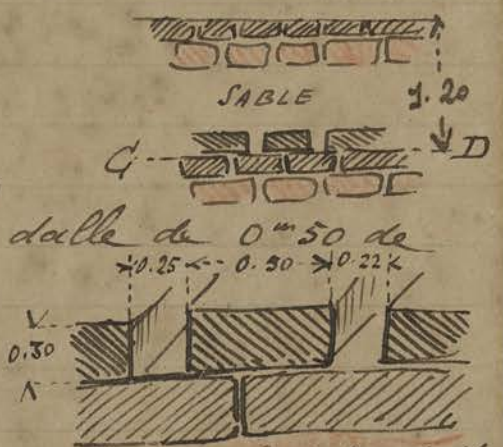 SABLE
1.20
C D
dalle de 0m50 de
0.25 0.50 0.22
0.30